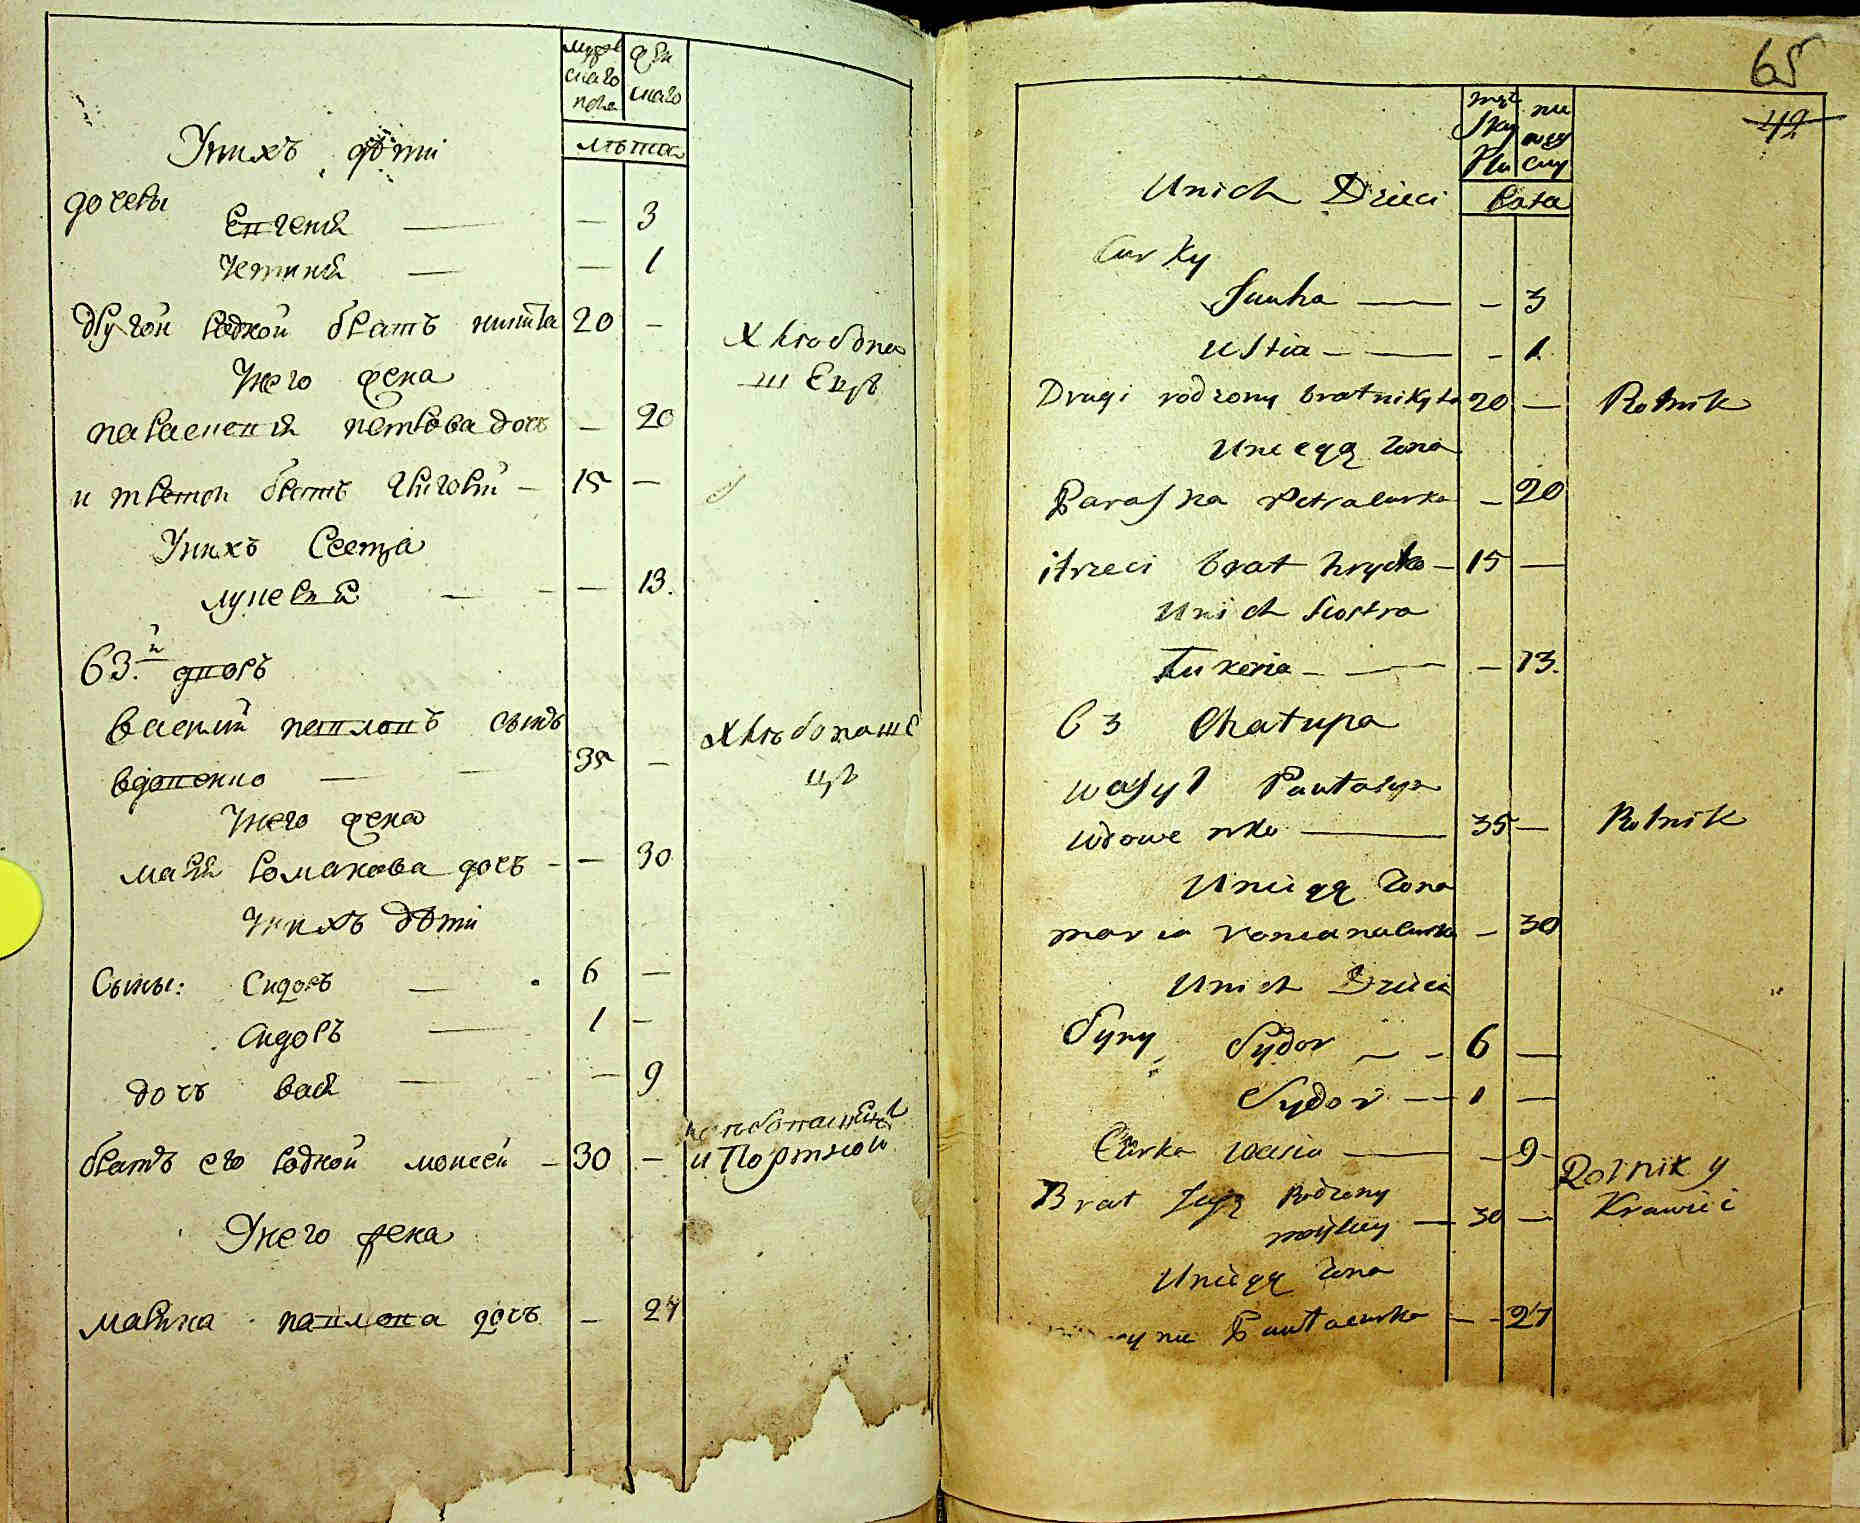 мужескаго пола
женскаго
лѣта
У нихъ дѣти
дочеры
Евгения — — 3
— — 1
другой родной братъ никита 20 —
Хлѣбопашецъ
У него жена
параскевия петрова дочь — 20
и третои братъ григорий — 15 —
У нихъ Сестра
лукерия — — 13.
63.й дворъ
Василий павловъ сынъ
вдовенко — 35 —
Хлѣбопашецъ
У него жена
мария романова дочь — — 30
У нихъ дѣти
Сыны: Сидоръ — 6 —
Сидоръ — 1 —
дочь васа — — 9
братъ его родной моисей — 30 —
хлѣбопашецъ
и Портной
У него жена
марина павлова дочь — 27
65
42
męz
sky
Plci
Lata
Unich Dzieci
Curky
— - 3
Ustia — - 1
Drugi rodzony brat nikyta 20 — Rolnik
Uniegą żona
Paraska Petra curka — 20
i trzeci brat hrycko — 15 —
Unich siostra
Łukeria — — 13.
63 Chatupa
Wasyl Pawla syn
wdowenko — 35 — Rolnik
Uniegą żona
maria romana curka — 30
Unich Dzieci
Syny Sydor — - 6 —
Sydor — 1 —
Curka wasia — - 9
Brat jego Rodzony
— 30 —
Rolnik y
Krawiec
Uniegą żona
Pawla curka — - 27